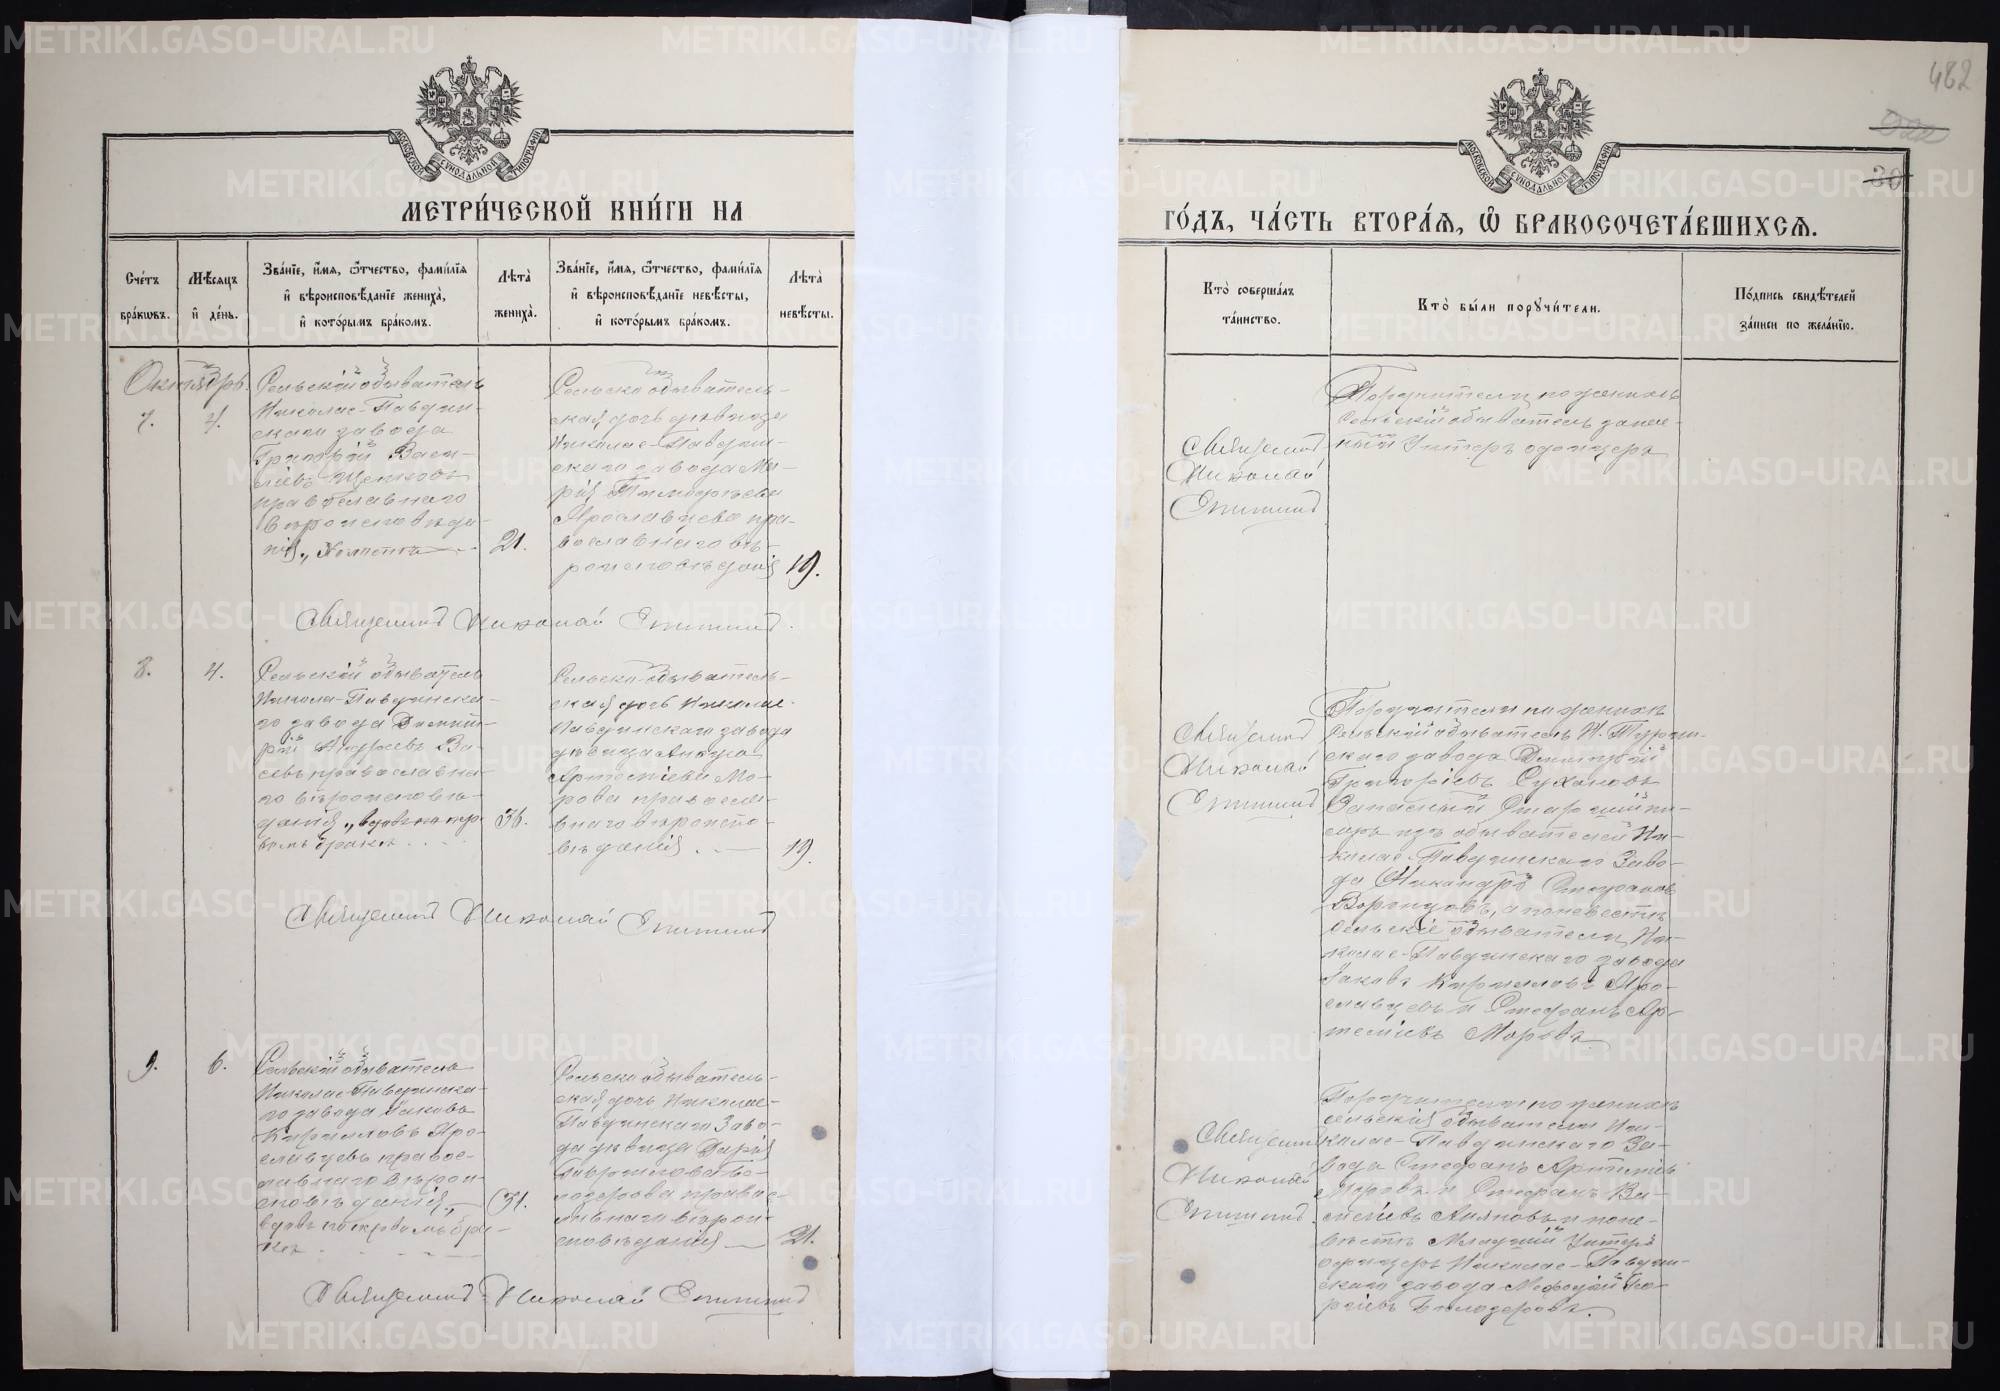 482
922
30
МОСКОВСКОЙ СУНОДАЛЬНОЙ ТИПОГРАФІИ
МОСКОВСКОЙ СУНОДАЛЬНОЙ ТИПОГРАФІИ
МЕТРИ́ЧЕСКОЙ КНИ́ГИ НА
ГО́ДЪ, ЧА́СТЬ ВТОРА́Ѧ, Ѽ БРАКОСОЧЕТА́ВШИХСѦ.
Сче́тъ бра́кѡвъ.
Мѣ́сяцъ и҆ де́нь.
Зва́нїе, и҆́мѧ, ѻ҆́тчество, фами́лїѧ и҆ вѣроисповѣ́данїе жениха̀, и҆ кото́рымъ бра́комъ.
Лѣ́та жениха̀.
Зва́нїе, и҆́мѧ, ѻ҆́тчество, фами́лїѧ и҆ вѣроисповѣ́данїе невѣ́сты, и҆ кото́рымъ бра́комъ.
Лѣ́та невѣ́сты.
Кто̀ соверша́лъ та́инство.
Кто̀ бы́ли порꙋчи́тели.
По́дпись свидѣ́телей за́писи по жела́нїю.
Октябрь.
7.
4.
Сельскій обыватель
Николае-Павдин-
скаго завода
Григорій Васи-
ліевъ
православнаго
вѣроисповѣда-
нія,
21.
Сельско обыватель-
ская дочь девица
Николае-Павдин-
скаго завода Ма-
рія Тимофѣева
Ярославцева пра-
вославнаго вѣ-
роисповѣданія
19.
Священникъ
Николай
Поручители по женихѣ
Сельскій обыватель запас-
ный Унтеръ офицеръ
Священникъ Николай
8.
4.
Сельскій обыватель
Никола-Павдинска-
го завода Димит-
рій Андреевъ Ва-
севъ православна-
го вѣроисповѣ-
данія, вдовъ по пер-
вомъ бракѣ
36.
Сельско-обыватель-
ская дочь Николае-
Павдинскаго завода
дѣвица
Артеміева Мо-
рова правосла-
внаго вѣроиспо-
вѣданія.
19.
Священникъ
Николай
Поручители по женихѣ
Сельскій обыватель Н. Турин-
скаго завода Димитрій
Григоріевъ Сухановъ
Запасный Старшій пи-
сарь изъ обывателей Ни-
колае-Павдинскаго Заво-
да Никандръ Стефановъ
Воронцовъ, а по невестѣ
сельскіе обыватели Ни-
колае-Павдинскаго завода
Іаковъ Кирилловъ Яро-
славцевъ и Стефанъ Ар-
теміевъ Моровъ
Священникъ Николай
9.
6.
Сельскій обыватель
Николае-Павдинска-
го завода Іаковъ
Кирилловъ Яро-
славцевъ правос-
лавнаго вѣроис-
повѣданія,
вдовъ по первомъ бра-
кѣ
31.
Сельско обыватель-
ская дочь Николае-
Павдинскаго Заво-
да дѣвица Дарія
Бѣло-
зерова правос-
лавнаго вѣроис-
повѣданія
21.
Священникъ
Николай
Поручители по женихѣ
сельскія обыватели Ни-
колае-Павдинскаго За-
вода Стефанъ Артеміевъ
Моровъ и Стефанъ Ва-
силіевъ и по не-
вѣстѣ Младшій Унтеръ
офицеръ Николае-Павдин-
скаго завода Мефодій
Бѣлозеровъ.
Священникъ Николай
METRIKI.GASO-URAL.RU